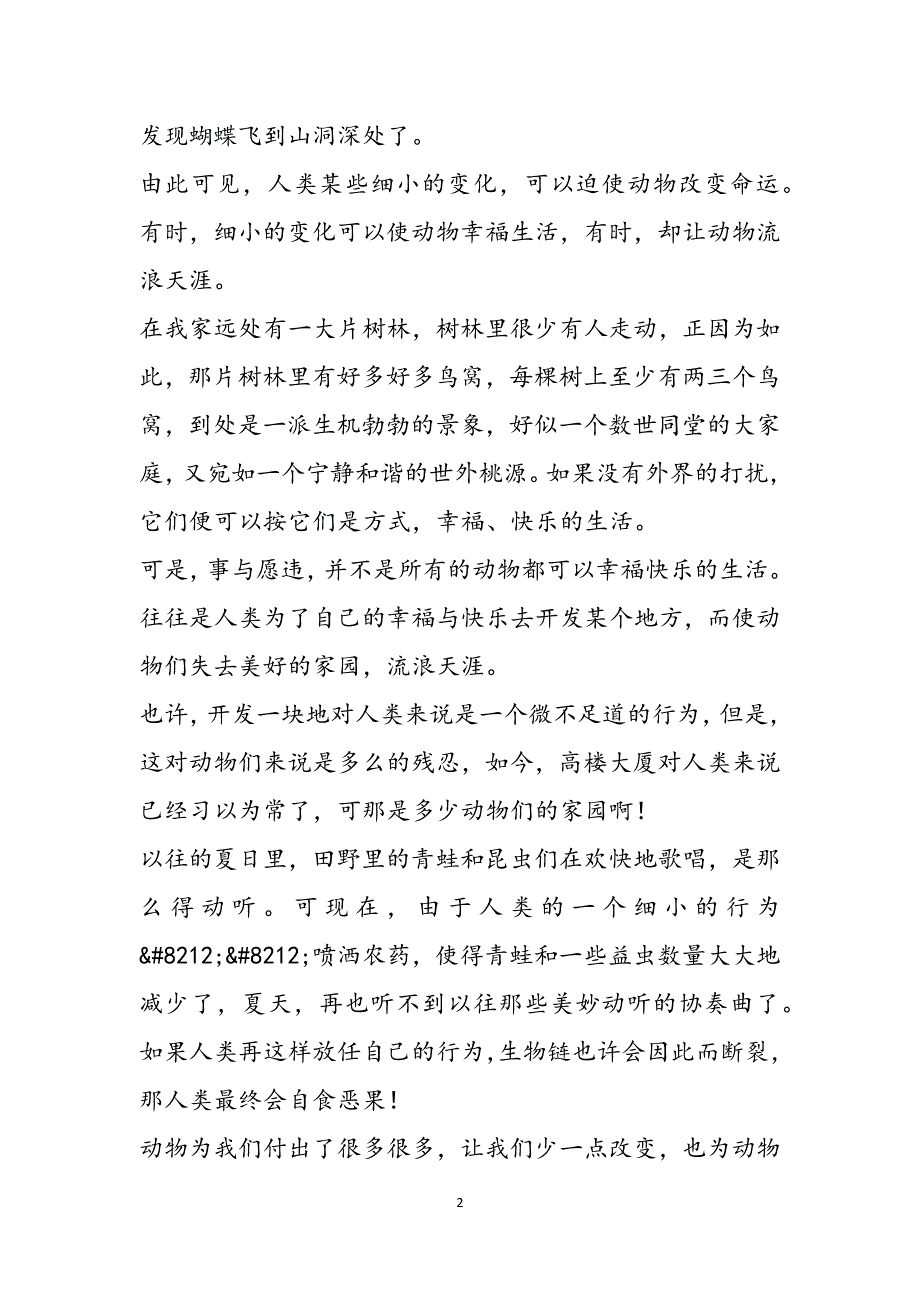 发现蝴蝶飞到山洞深处了。
由此可见，人类某些细小的变化，可以迫使动物改变命运。
有时，细小的变化可以使动物幸福生活，有时，却让动物流
浪天涯。
在我家远处有一大片树林，树林里很少有人走动，正因为如
此，那片树林里有好多好多鸟窝，每棵树上至少有两三个鸟
窝，到处是一派生机勃勃的景象，好似一个数世同堂的大家
庭，又宛如一个宁静和谐的世外桃源。如果没有外界的打扰，
它们便可以按它们是方式，幸福、快乐的生活。
可是，事与愿违，并不是所有的动物都可以幸福快乐的生活。
往往是人类为了自己的幸福与快乐去开发某个地方，而使动
物们失去美好的家园，流浪天涯。
也许，开发一块地对人类来说是一个微不足道的行为，但是，
这对动物们来说是多么的残忍，如今，高楼大厦对人类来说
已经习以为常了，可那是多少动物们的家园啊！
以往的夏日里，田野里的青蛙和昆虫们在欢快地歌唱，是那
么得动听。可现在，由于人类的一个细小的行为
&#8212;&#8212;喷洒农药，使得青蛙和一些益虫数量大大地
减少了，夏天，再也听不到以往那些美妙动听的协奏曲了。
如果人类再这样放任自己的行为，生物链也许会因此而断裂，
那人类最终会自食恶果！
动物为我们付出了很多很多，让我们少一点改变，也为动物
2